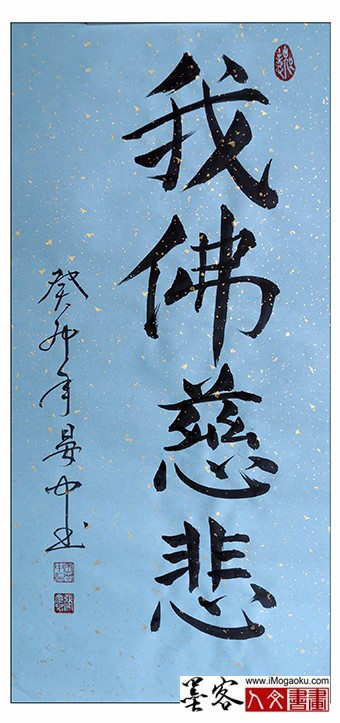 我佛慈悲
癸卯年晏中书
www.iMogaoku.com
墨客
人文書畫